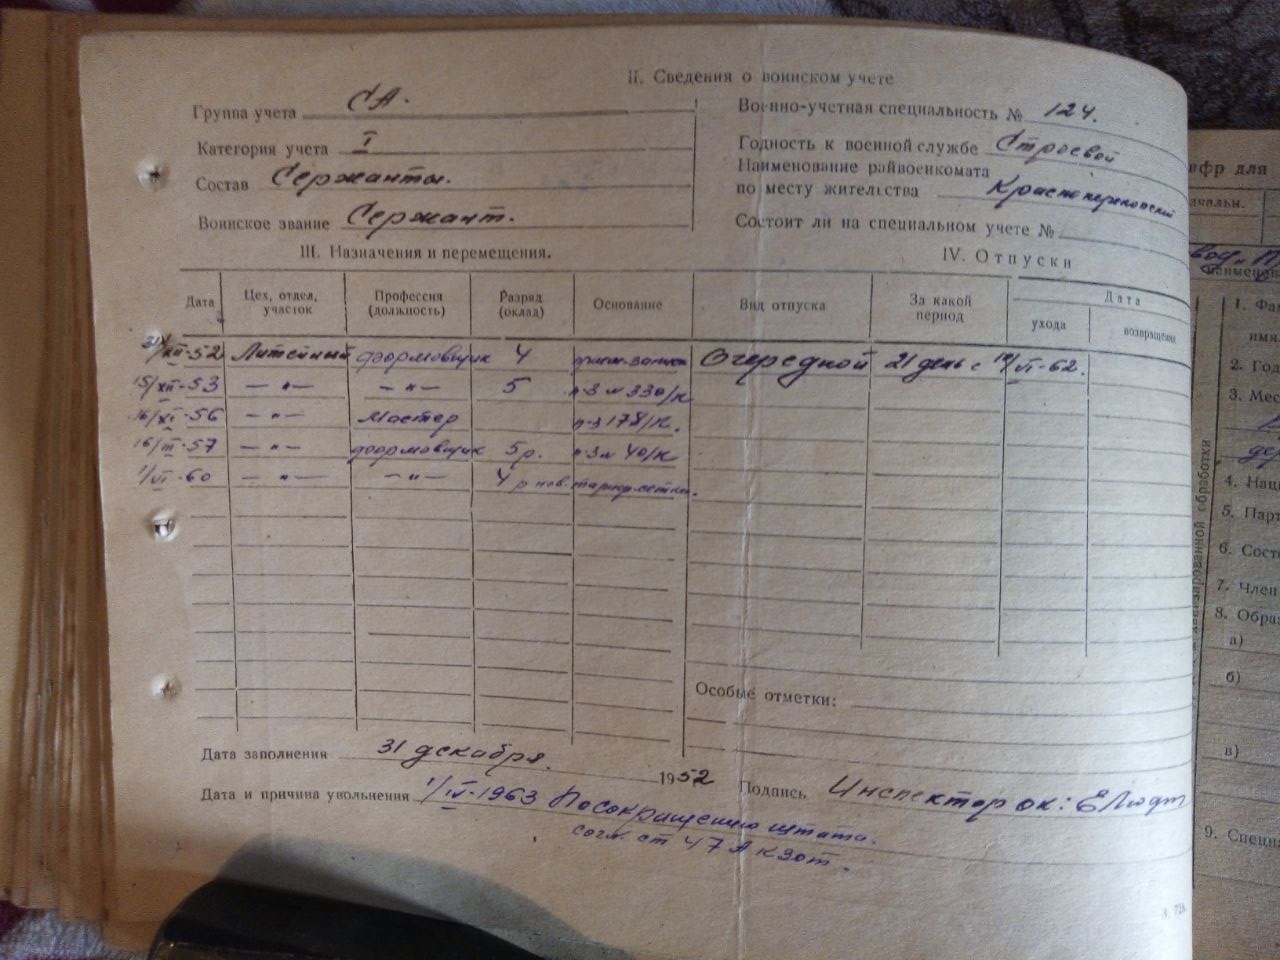 II. Сведения о воинском учете
Группа учета СА.
Категория учета I
Состав Сержанты.
Воинское звание Сержант.
Военно-учетная специальность № 124.
Годность к военной службе Строевой
Наименование райвоенкомата
по месту жительства Краснопереконский
Состоит ли на специальном учете №
III. Назначения и перемещения.
IV. Отпуски
Дата Цех, отдел, участок Профессия (должность) Разряд (оклад) Основание Вид отпуска За какой период Дата ухода возвращения
31/XII-52 Литейный формовщик 4 Очередной 21 день с 19/VI-62.
15/XII-53 —"— —"— 5 п-з № 330/к
16/XI-56 —"— мастер п-з 178/к.
16/III-57 —"— формовщик 5р. п-з № 40/к
1/VI-60 —"— —"— 4 р нов. сетка.
Особые отметки:
Дата заполнения 31 декабря. 1952
Подпись Инспектор ок:
Дата и причина увольнения 1/IV-1963 По сокращению штата.
согл. ст 47 А кзот.
З. 728
ифр для
ачальн.
наименов
1. Фа
имя
2. Год
3. Мес
4. Наци
5. Парт
6. Состо
7. Член
8. Образ
а)
б)
в)
9. Специа